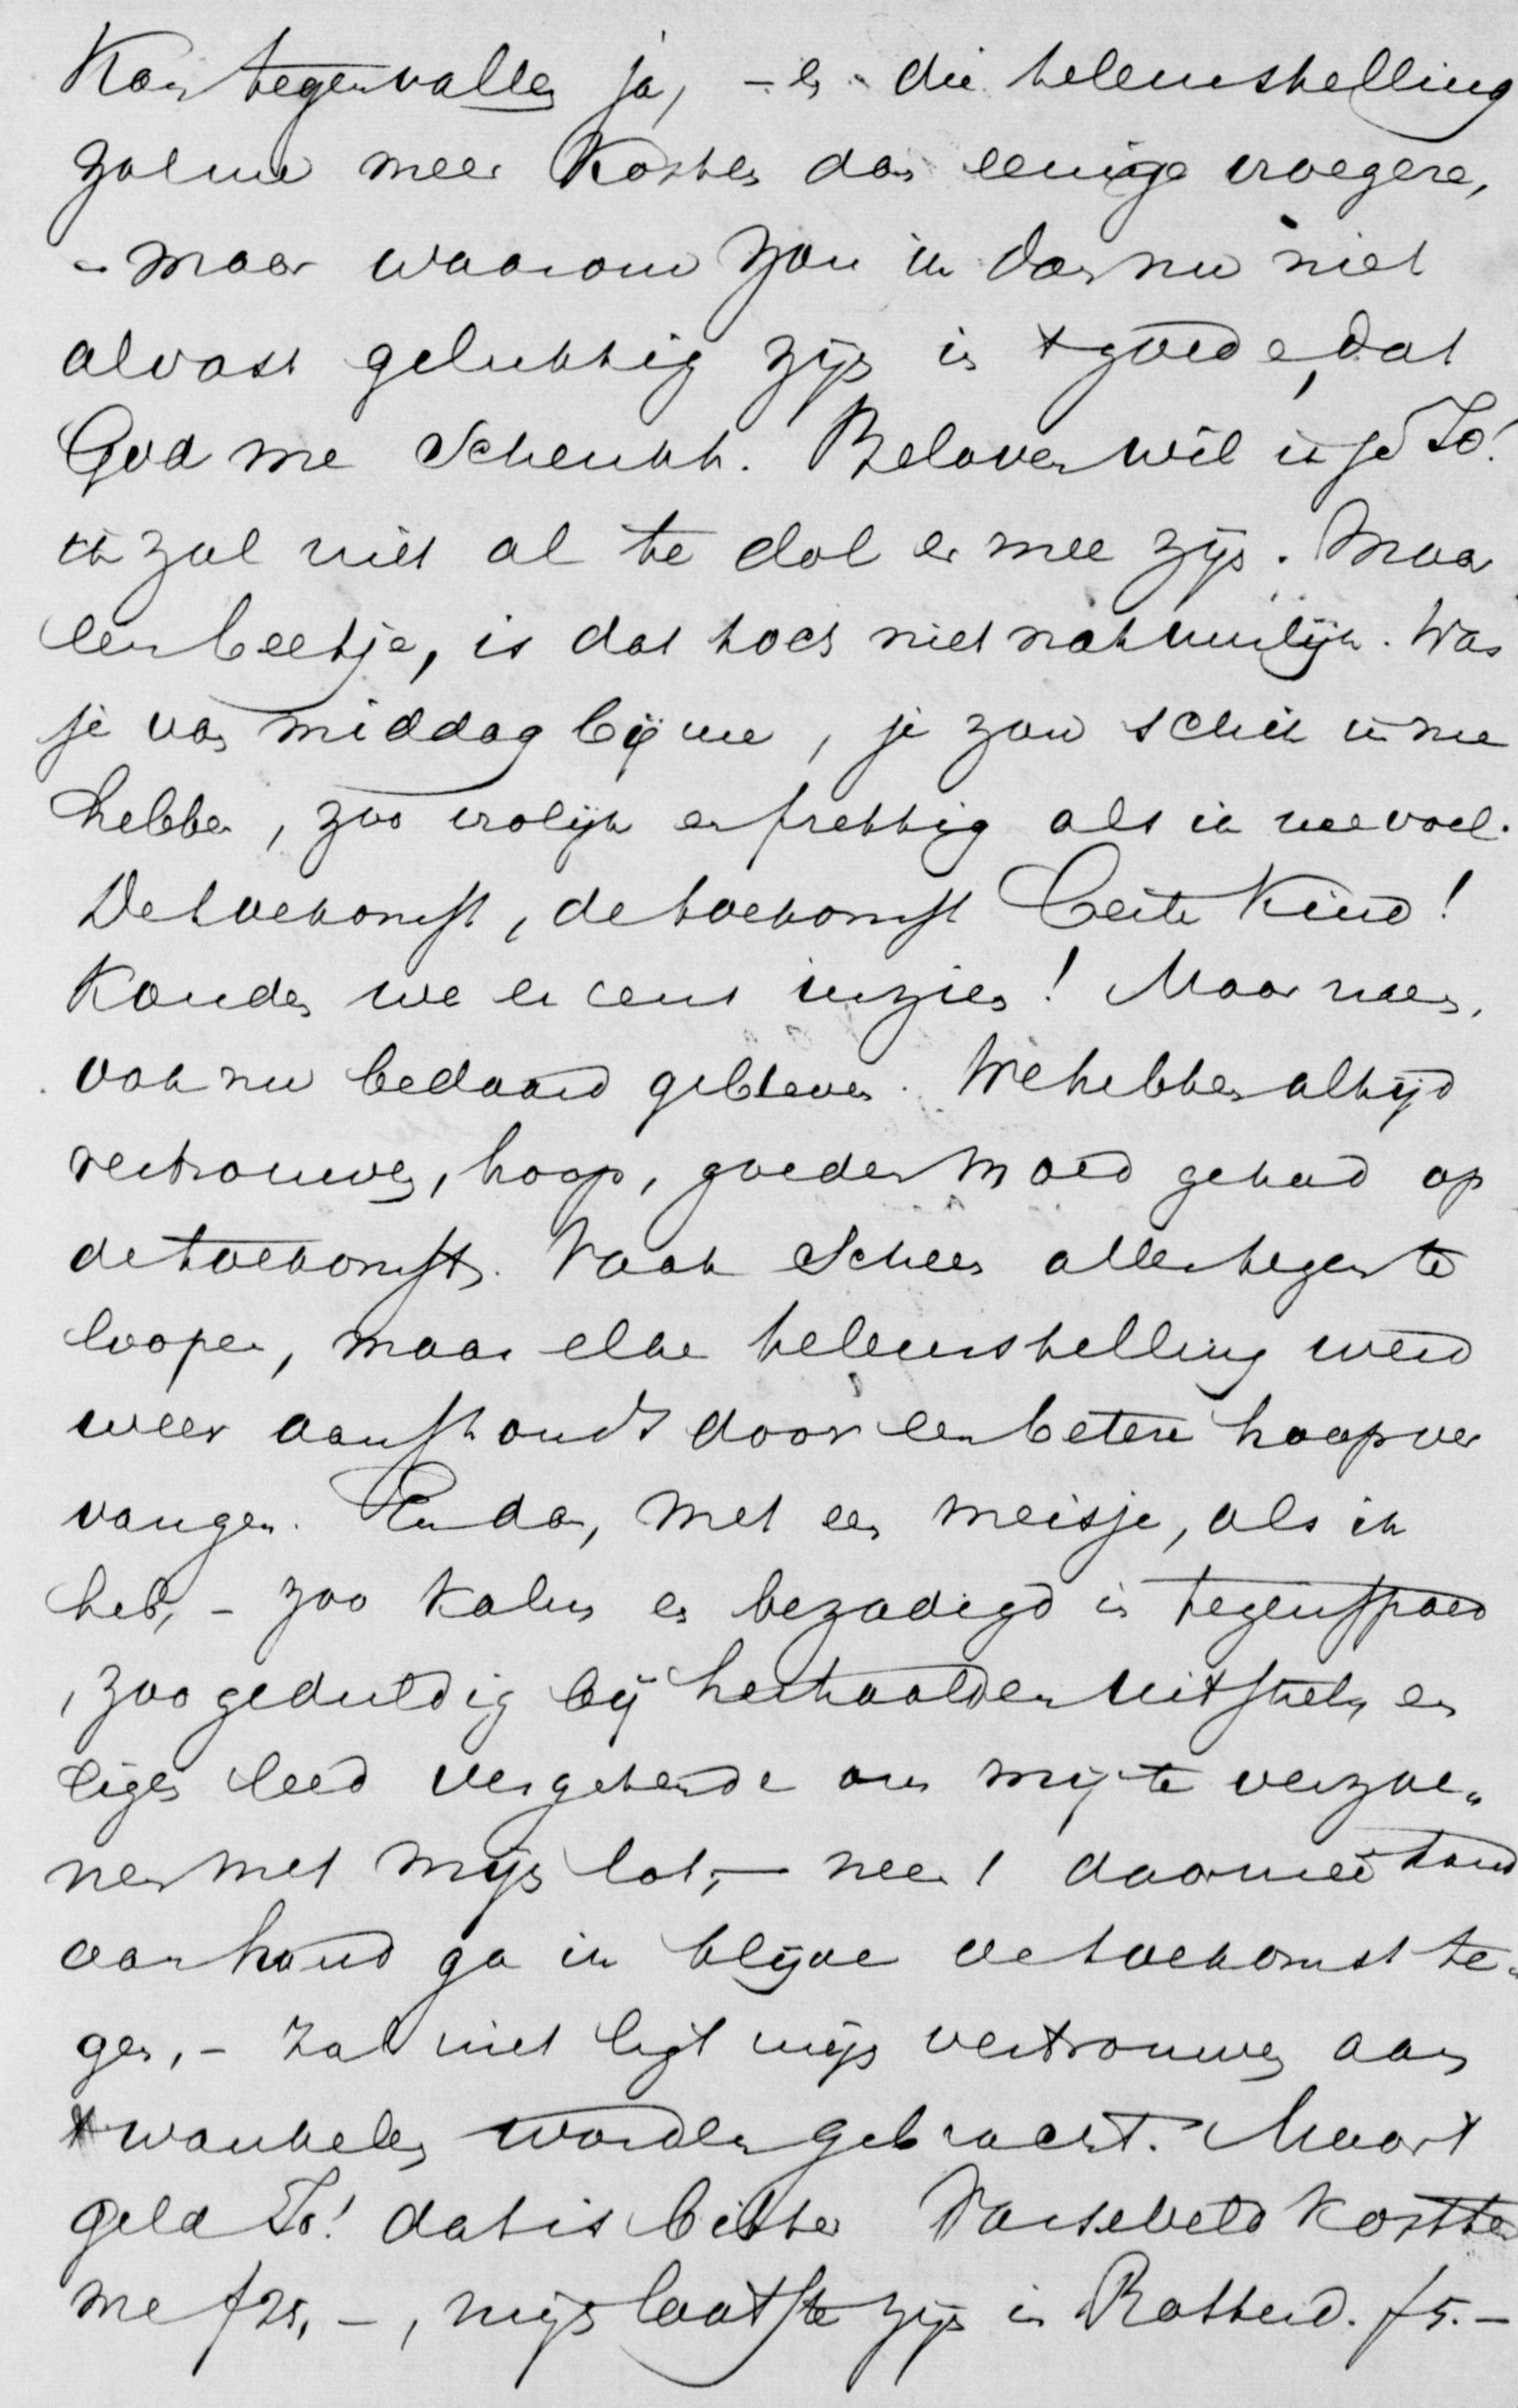 Kan tegenvallen ja, – en die teleurstelling
zal me meer kosten dan eenige vroegere,
– maar waarom zou ik dan nu niet
alvast gelukkig zijn in 't goede, dat
God me schenkt. Beloven wil ik je Jo!
ik zal niet al te dol er mee zijn. Maar
een beetje, is dat toch niet natuurlijk. Was
je van middag bij me, je zou schik in me
hebben, zoo vrolijk en prettig als ik me voel.
De toekomst, de toekomst beste Kind!
Konden we er eens inzien! Maar neen,
ook nu bedaard gebleven. We hebben altijd
vertrouwen, hoop, goeden moed gehad op
de toekomst. Vaak scheen alles tegen te
loopen, maar elke teleurstelling werd
weer aanstonds door een betere hoop ver
vangen. En dan, met een meisje, als ik
heb, – zoo kalm en bezadigd in tegenspoed
, zoo geduldig bij herhaalden uitstel, en
eigen leed vergetende om mij te verzoe„
nen met mijn lot, – neen! daarmee hand
aan hand ga ik blijde de toekomst te„
gen, – zal niet ligt mijn vertrouwen aan
't wankelen worden gebracht. Maar 't
geld Jo! dat is bitter Varseveld kostte
me f25,–, mijn laatste zijn in Rotterd. f5.–